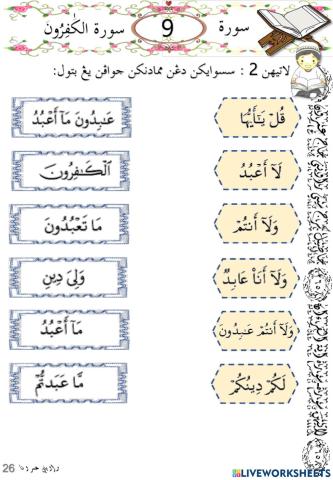 سورة 9 سورة الكٰفِرُون
لاتيهن 2 : سسوايكن دڠن ممادنكن جواڤن يڠ بتول:
قُلْ يَـٰٓأَيُّهَا
عَـٰبِدُونَ مَآ أَعْبُدُ
لَآ أَعْبُدُ
ٱلْكَـٰفِرُونَ
وَلَآ أَنتُمْ
مَا تَعْبُدُونَ
وَلَآ أَنَا۠ عَابِدٌ
وَلِىَ دِينِ
وَلَآ أَنتُمْ عَـٰبِدُونَ
مَآ أَعْبُدُ
لَكُمْ دِينُكُمْ
مَّا عَبَدتُّمْ
26
LIVEWORKSHEETS